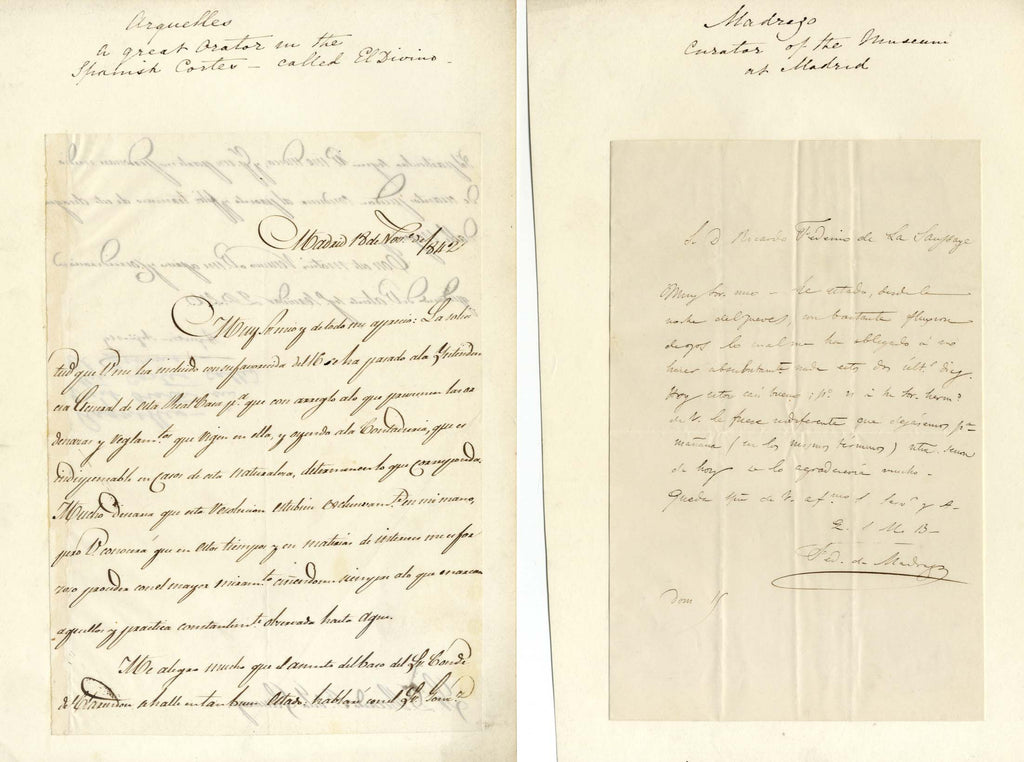 Arguelles
a great Orator in the
Spanish Cortes – called El Divino.
Madrid 18 de Nov.e de 1842
Muy Sr mio y de todo mi aprecio: La solici
tud que V. me ha incluido con su favorecida del 16 se ha pasado ala Yntenden
cia General de esta Real Casa p.a que con arreglo alo que previenen las or
denanzas y Reglam.tos que rigen en ella, y oyendo ala Contaduria, que es
indispensable en casos de esta naturaleza, determinen lo que corresponda.
Mucho desearia que esta resolucion estubiera exclusivam.te en mi mano,
pero V. conocerá que en estos tiempos y en materias de intereses me es for
zoso proceder con el mayor miram.to ciñendome siempre alo que marcan
aquellos y practica constantem.te observada hasta aqui.
Me alegro mucho que el asunto del Caso del Sr Conde
de se halle en tan buen estado: hablaré con el Sr
Madrazo
Curator of the Museum
at Madrid
S. D Ricardo Federico de La Saussaye
Muy Sr. mio – he estado, desde la
noche del jueves, con bastante fluxion
de ojos lo cual me ha obligado á no
hacer absolutam.te nada estos dos últ.s dias.
Hoy estoy casi bueno; p.o si á su Sr. herm.o
de V. le fuese indiferente que dejásemos p.a
mañana (en los mismos términos) ntra. sesion
de hoy se lo agradeceria mucho.
Queda sp.re de V. af.mo S. Serv.r y A.
Q. S. M. B–
Fed. de Madrazo
Dom 15